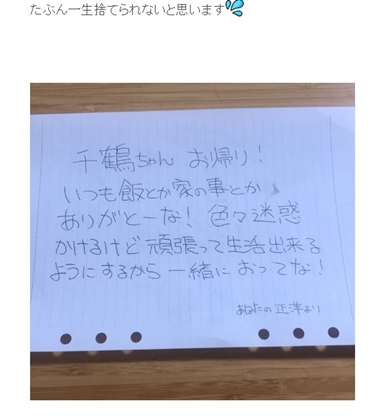 たぶん一生捨てられないと思います💦
千鶴ちゃん お帰り!
いつも飯とか家の事とか
ありがとーな! 色々迷惑
かけるけど 頑張って生活出来る
ようにするから 一緒に おってな!
あなたの 正洋より